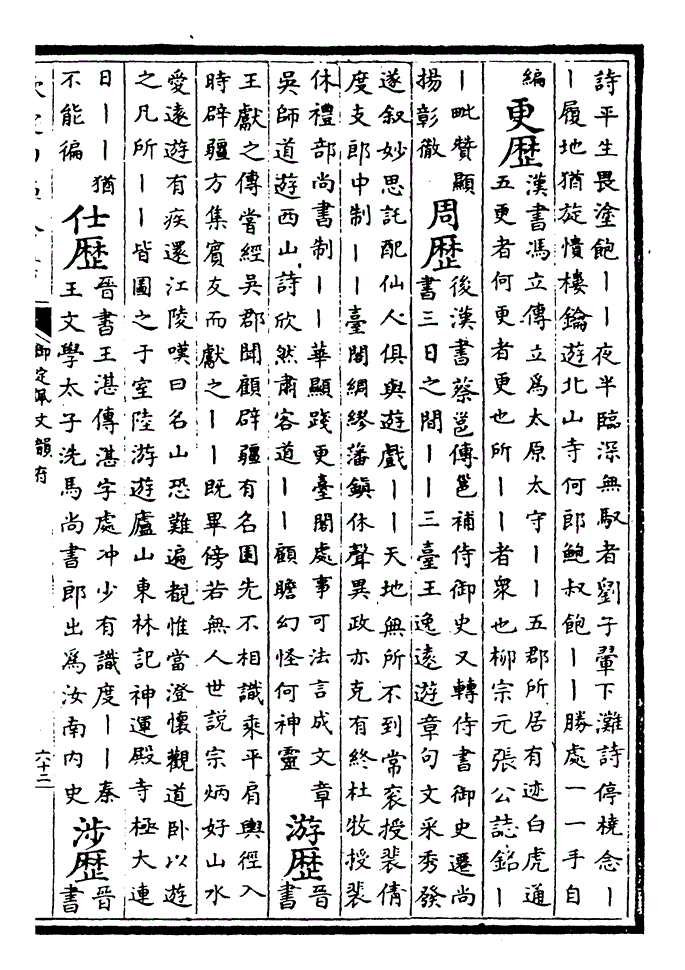 詩平生畏塗飽〡〡夜半臨深無馭者劉子翬下灘詩停橈念〡
〡履地猶旋憤樓鑰遊北山寺何郎鮑叔飽〡〡勝處一一手自
編
更歴
漢書馮立傳立爲太原太守〡〡五郡所居有迹白虎通
五更者何更者更也所〡〡者衆也柳宗元張公誌銘〡
〡毗贊顯
揚彰徽
周歴
後漢書蔡邕傳邕補侍御史又轉侍書御史遷尚
書三日之間〡〡三臺王逸遠遊章句文采秀發
遂叙妙思託配仙人俱與遊戲〡〡天地無所不到常衮授裴倩
度支郎中制〡〡臺閣綢繆藩鎮休聲異政亦克有終杜牧授裴
休禮部尚書制〡〡華顯踐更臺閣處事可法言成文章
吳師道遊西山詩欣然肅客道〡〡顧瞻幻怪何神靈
游歴
晉
書
王獻之傳嘗經吳郡聞顧辟疆有名園先不相識乘平肩輿徑入
時辟疆方集賓友而獻之〡〡既畢傍若無人世説宗炳好山水
愛遠遊有疾還江陵嘆曰名山恐難遍覩惟當澄懷觀道臥以遊
之凡所〡〡皆圖之于室陸游遊廬山東林記神運殿寺極大連
日〡〡猶
不能徧
仕歴
晉書王湛傳湛字處冲少有識度〡〡秦
王文學太子洗馬尚書郎出爲汝南内史
涉歴
晉
書
御定佩文韻府
六十二